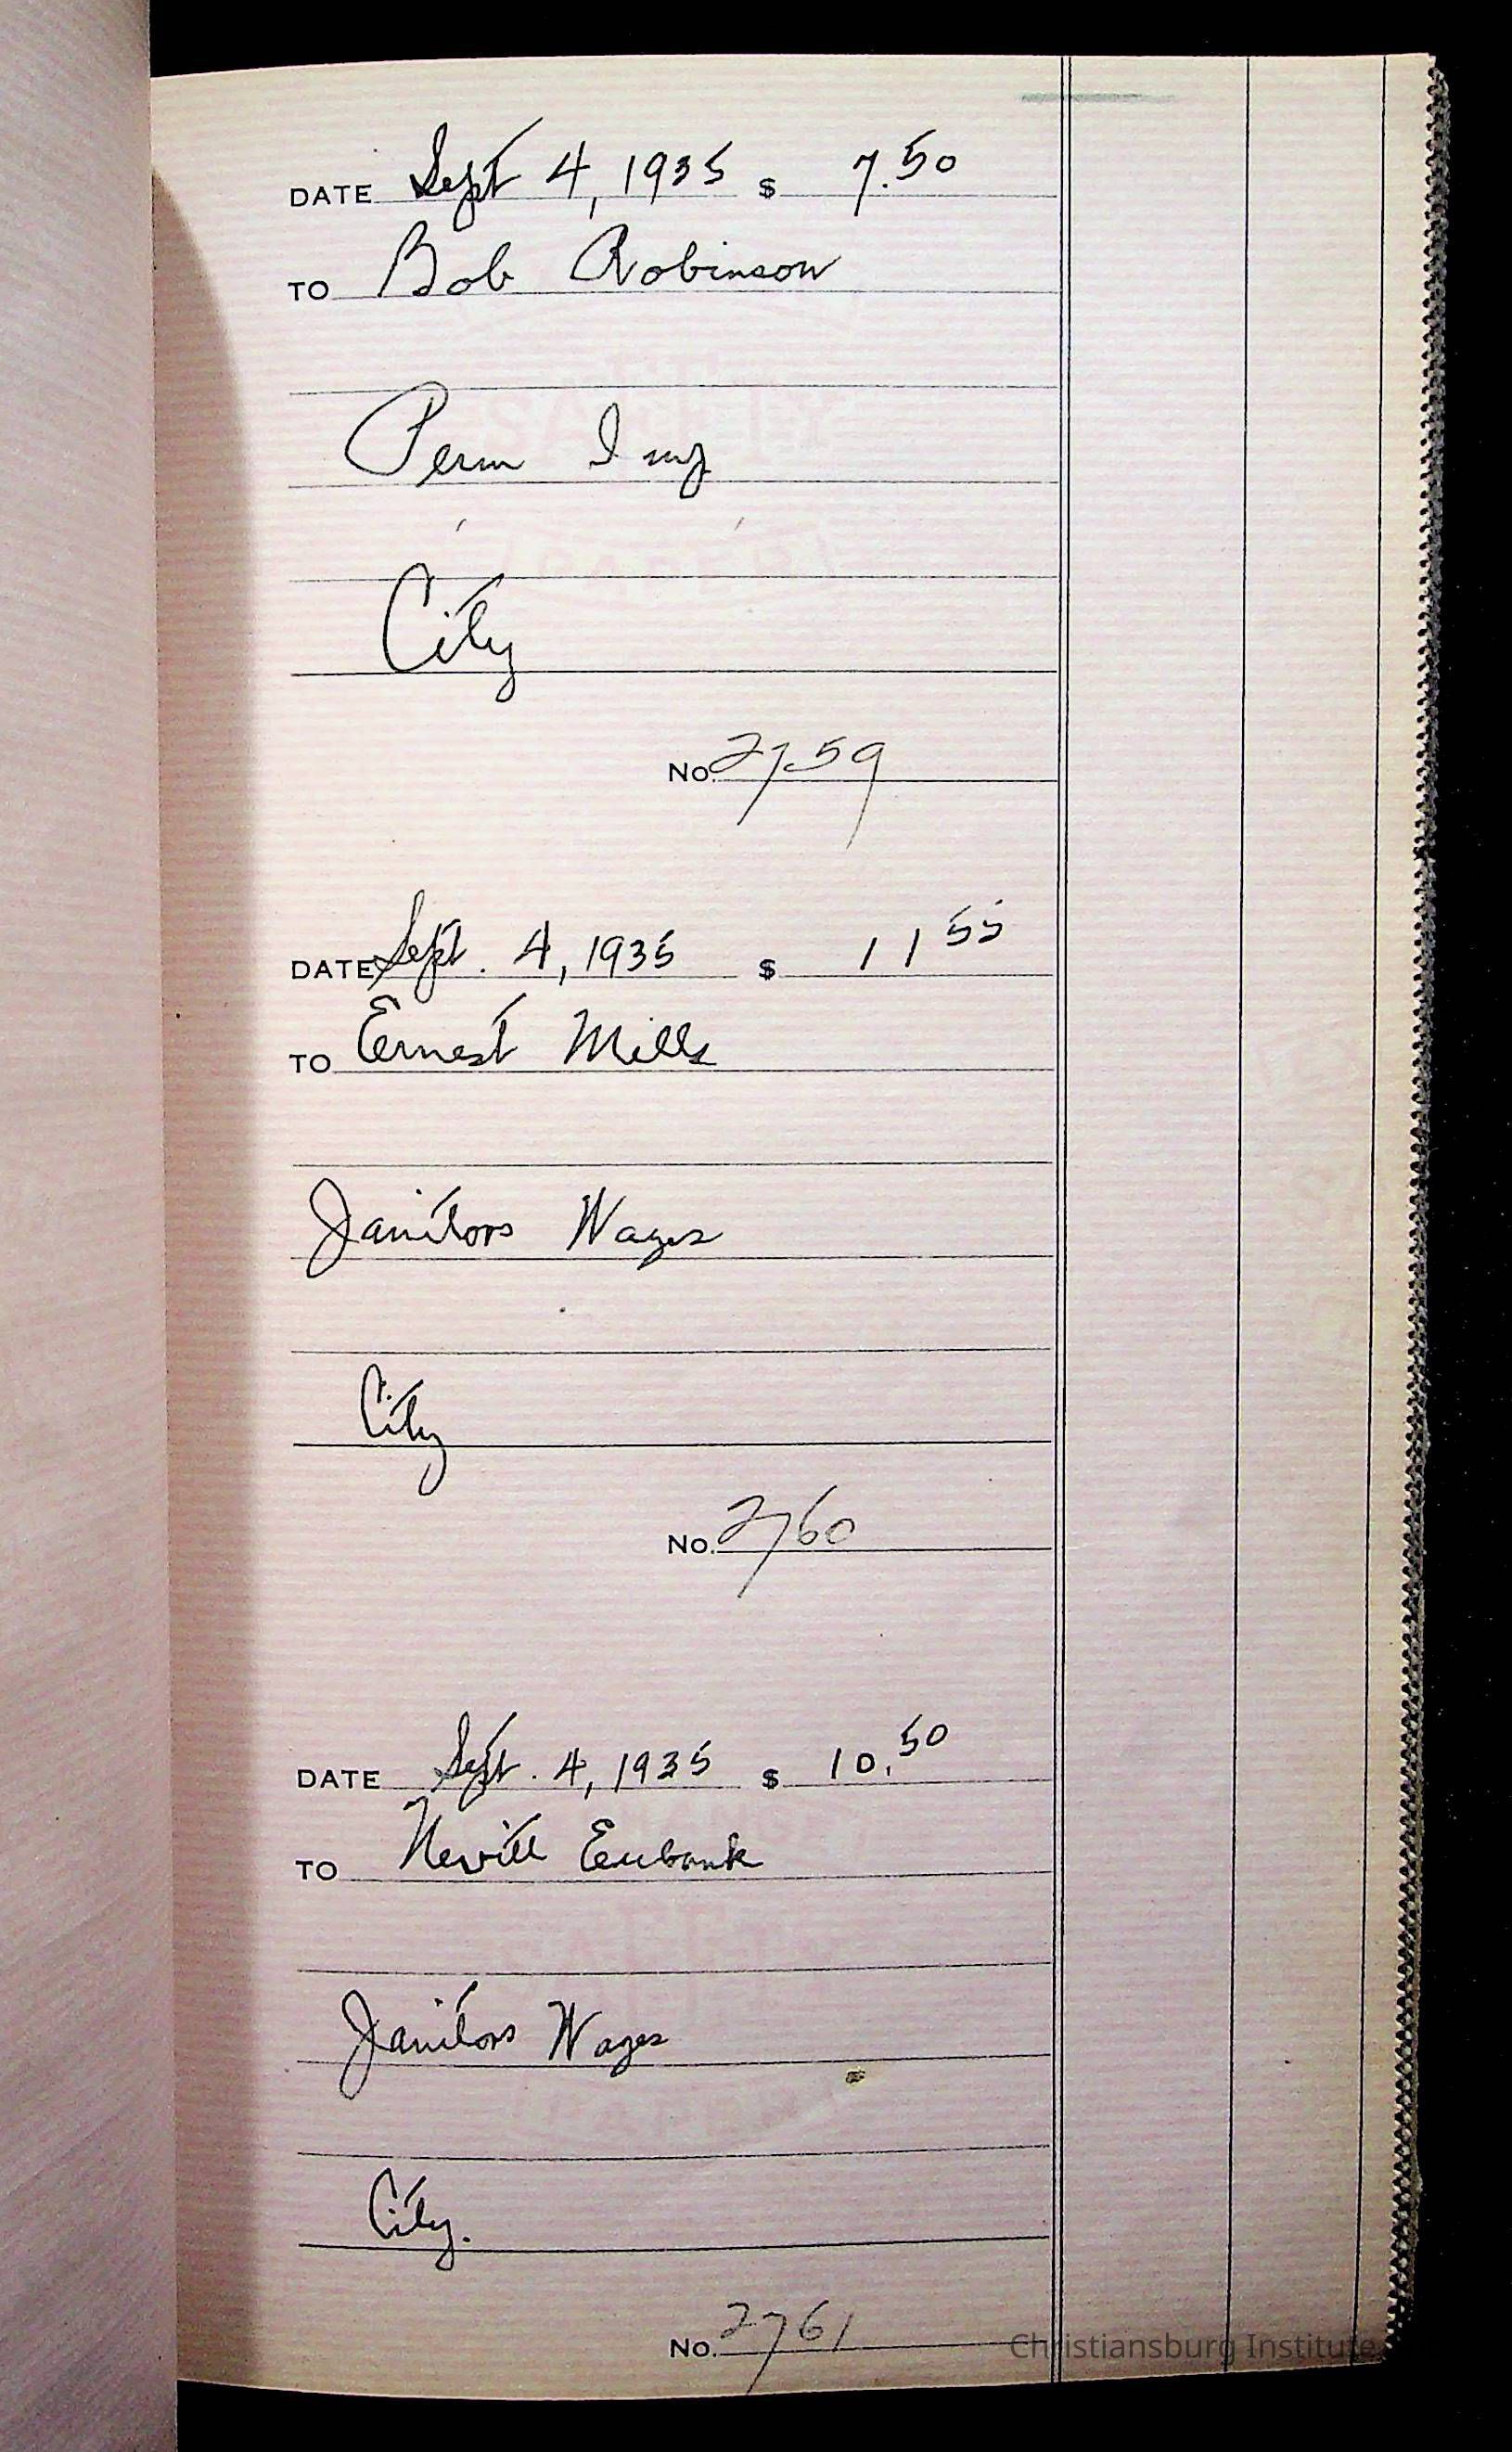 DATE Sept 4, 1935 $ 7.50
TO Bob Robinson
Perm Imp
City
No. 2759
DATE Sept. 4, 1935 $ 11 55
TO Ernest Mills
Janitors Wages
City
No. 2760
DATE Sept. 4, 1935 $ 10.50
TO Nevitt Eubank
Janitors Wages
City.
No. 2761
Christiansburg Institute